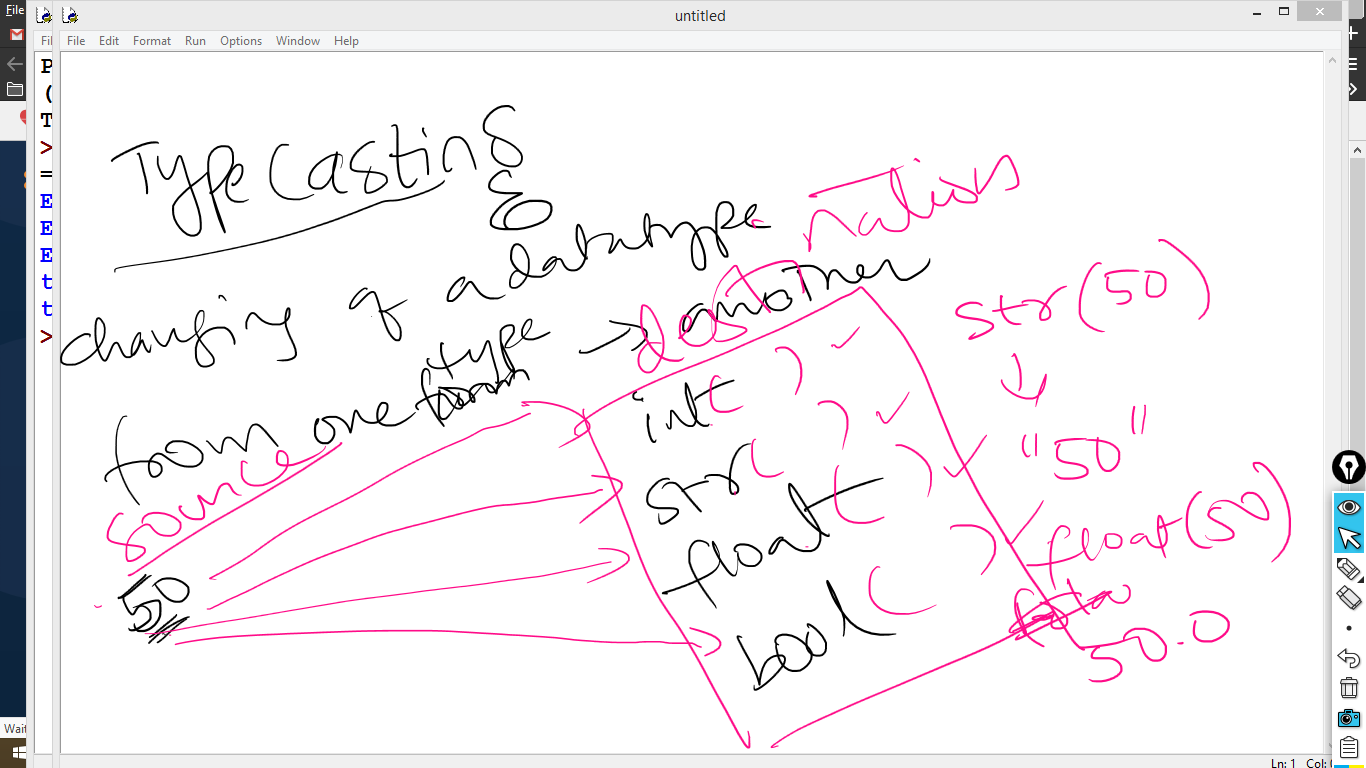 File
untitled
File Edit Format Run Options Window Help
Type Casting
changing of a datatype
from one type → another
source
dest
50
int( ) ✓
str( ) ✓
float( ) ✓
bool( ) ✓
str(50)
"50"
float(50)
50.0
Wait
Ln: 1 Col: